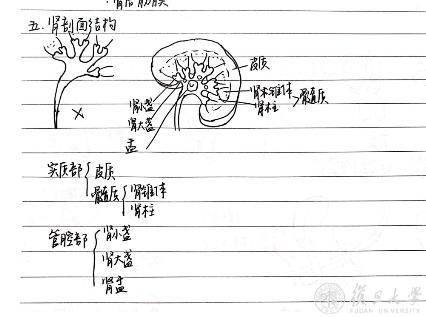 ·肾后筋膜
五.肾剖面结构
皮质
肾小盏
肾大盏
盂
肾锥体
肾柱
髓质
实质部
皮质
髓质
肾锥体
肾柱
管腔部
肾小盏
肾大盏
肾盂
復旦大學
FUDAN UNIVERSITY